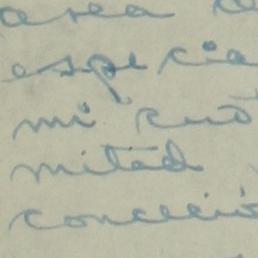 area de
especia
mi cuo
mitad
conceció